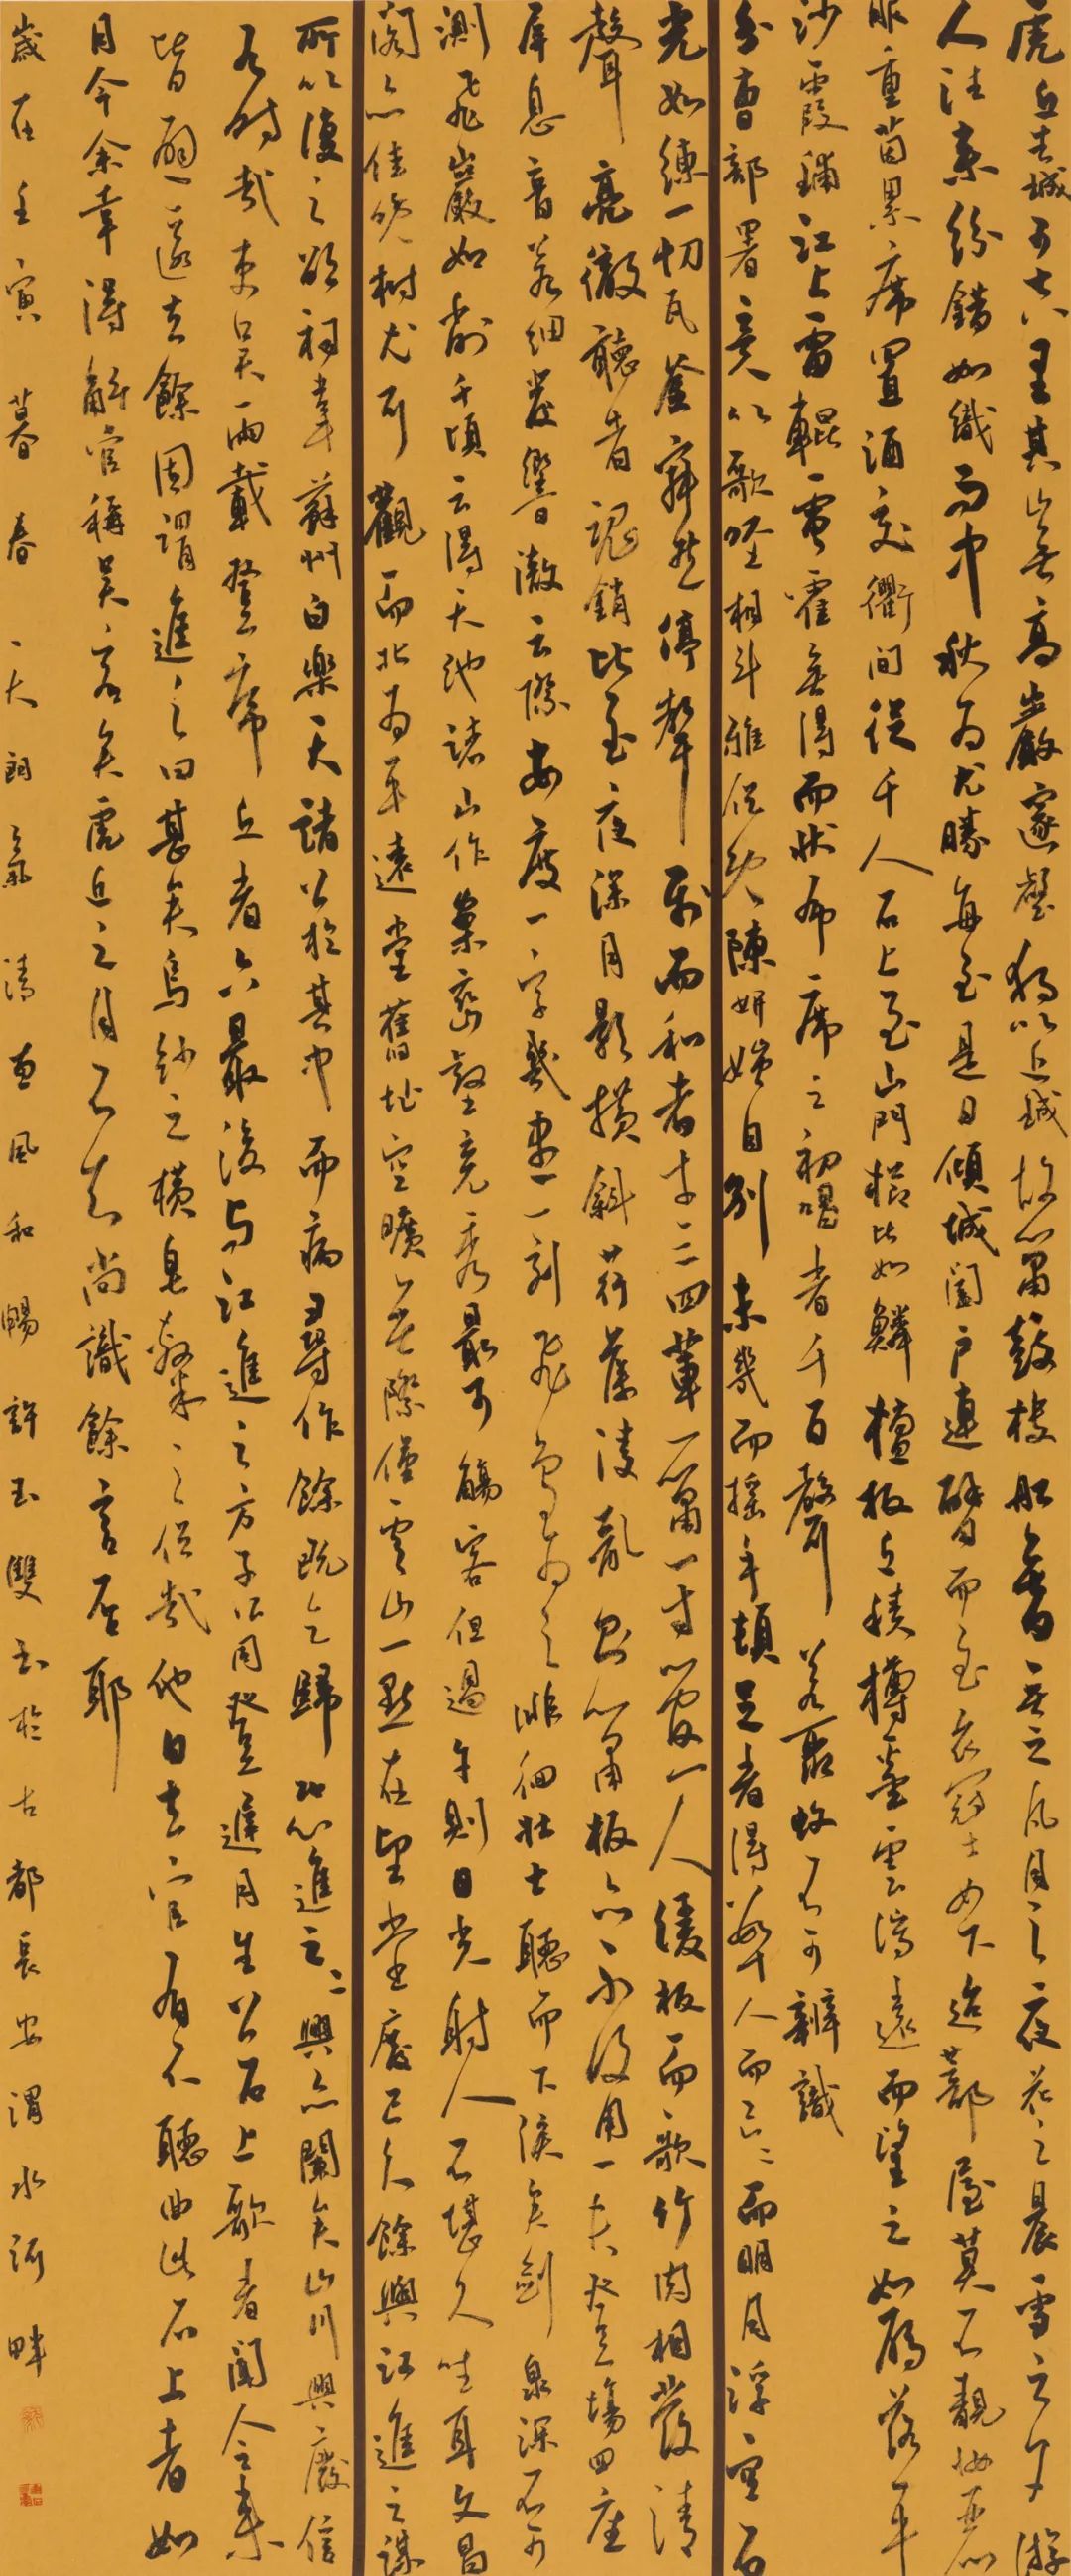 虎丘去城可七八里其山無高巖邃壑獨以近城故簫鼓樓船無日無之凡月之夜花之晨雪之夕游
人往來紛錯如織而中秋為尤勝每至是日傾城闔戶連臂而至衣冠士女下迨蔀屋莫不靚妝麗
服重茵累席置酒交衢間從千人石上至山門櫛比如鱗檀板丘積樽罍雲瀉遠而望之如雁落平
沙霞鋪江上雷輥電霍無得而狀布席之初唱者千百聲若聚蚊不可辨識
分曹部署竟以歌相斗雅俗既陳妍媸自別未幾而搖手頓足者得數十人而已已而明月浮空石
光如練一切瓦釜寂然停聲屬而和者才三四輩一簫一寸管一人緩板而歌竹肉相發清
聲亮徹聽者魂銷比至夜深月影橫斜荇藻凌亂則簫板亦不復用一夫登場四座
屏息音若細髮響徹云際每度一字幾盡一刻飛鳥為之徘徊壯士聽而下淚矣劍泉深不可
測飛巖如削千頃云得天池諸山作案巒壑競秀最可觴客但過午則日光射人不堪久坐耳文昌
閣亦佳晚樹尤可觀面北為平遠堂舊址空曠無際僅虞山一點在望堂廢已久餘與江進之謀
所以復之欲祠韋蘇州白樂天諸公於其中而病尋作餘既乞歸恐進之之興亦闌矣山川興廢信
有時哉吏吳兩載登虎丘者六最後與江進之方子公同登遲月生公石上歌者聞令來
皆避匿去餘因謂進之曰甚矣烏紗之橫皂隸之俗哉他日去官有不聽曲此石上者如
月今余幸得解官稱吳客矣虎丘之月不知尚識餘言否耶
歲在壬寅暮春天朗氣清惠風和暢許玉雙書於古都長安渭水河畔